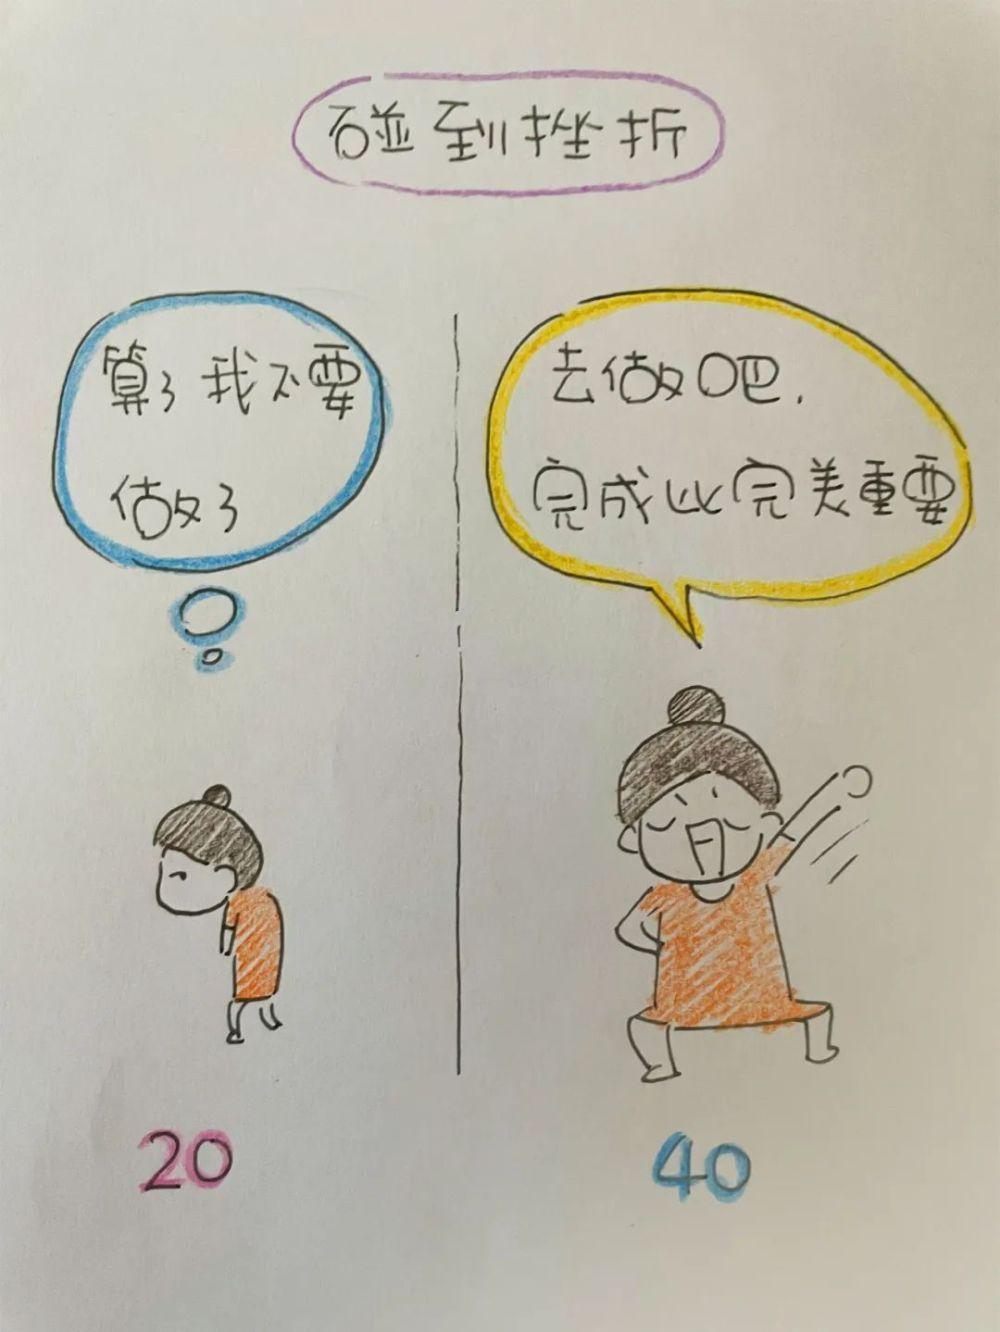 碰到挫折
算了我不要
做了
去做吧.
完成比完美重要
20
40